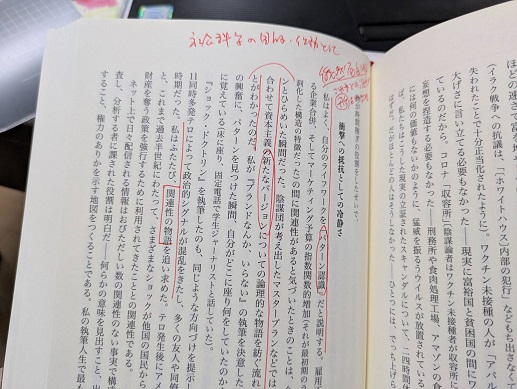 （イラク戦争への抗議は、「［ホワイトハウス］内部の犯行」などもち出さなく
失われたことで十分正当化されたように）。ワクチン未接種の人が「アパル
大げさに言い立てる必要もなかった――現実に富裕国と貧困国の間に
ているのだから。コロナ「収容所」陰謀論者はワクチン未接種者が収容所
妄想を捏造する必要もなかった――刑務所や食肉処理工場、アマゾンの
は何の価値もないかのように、猛威を振るうウイルスが放置されてい
ば、私たちはこうした現実の立証されたスキャンダルについて、二四時間
衝撃への抵抗としての冷静さ
私はよく、自分のライフワークを「パターン認識」だと説明する。雇用
る企業合併、そしてマーケティング予算の指数関数的増加（それが最初の
刺化した構造の特徴だった）の間に関連性があると気づいたときのことは、今
ンとひらめいた瞬間だった。陰謀団が考え出したマスタープランなどでは
合わせて資本主義の新たなバージョンについての論理的な物語を紡ぐ流れ
とがわかったのだ。私が『ブランドなんか、いらない』の執筆を決意した
の興奮に、パターンを見つけた瞬間、自分がどこに座り、何をしていたのか
に覚えている（床に座り、固定電話で学生ジャーナリストと話していた）。
『ショック・ドクトリン』を執筆したのも、同じような方向づけを提示
11同時多発テロによって政治的シグナルが混乱をきたし、多くの友人や同僚
時期だった。私はふたたび、関連性の物語を追い求めた。テロ発生後にアメ
と、これまで過去半世紀にわたって、さまざまなショックが他国の国民から
財産を奪う政策を強行するために利用されてきたこととの関連性である。
ネット上で日々配信される情報はおびただしい数の関連性のない事実で構
査し、分析する者に課された役割は明白だ――何らかの意味を見出すこと、出
すこと、権力のありかを示す地図をつくることである。私の執筆人生で最